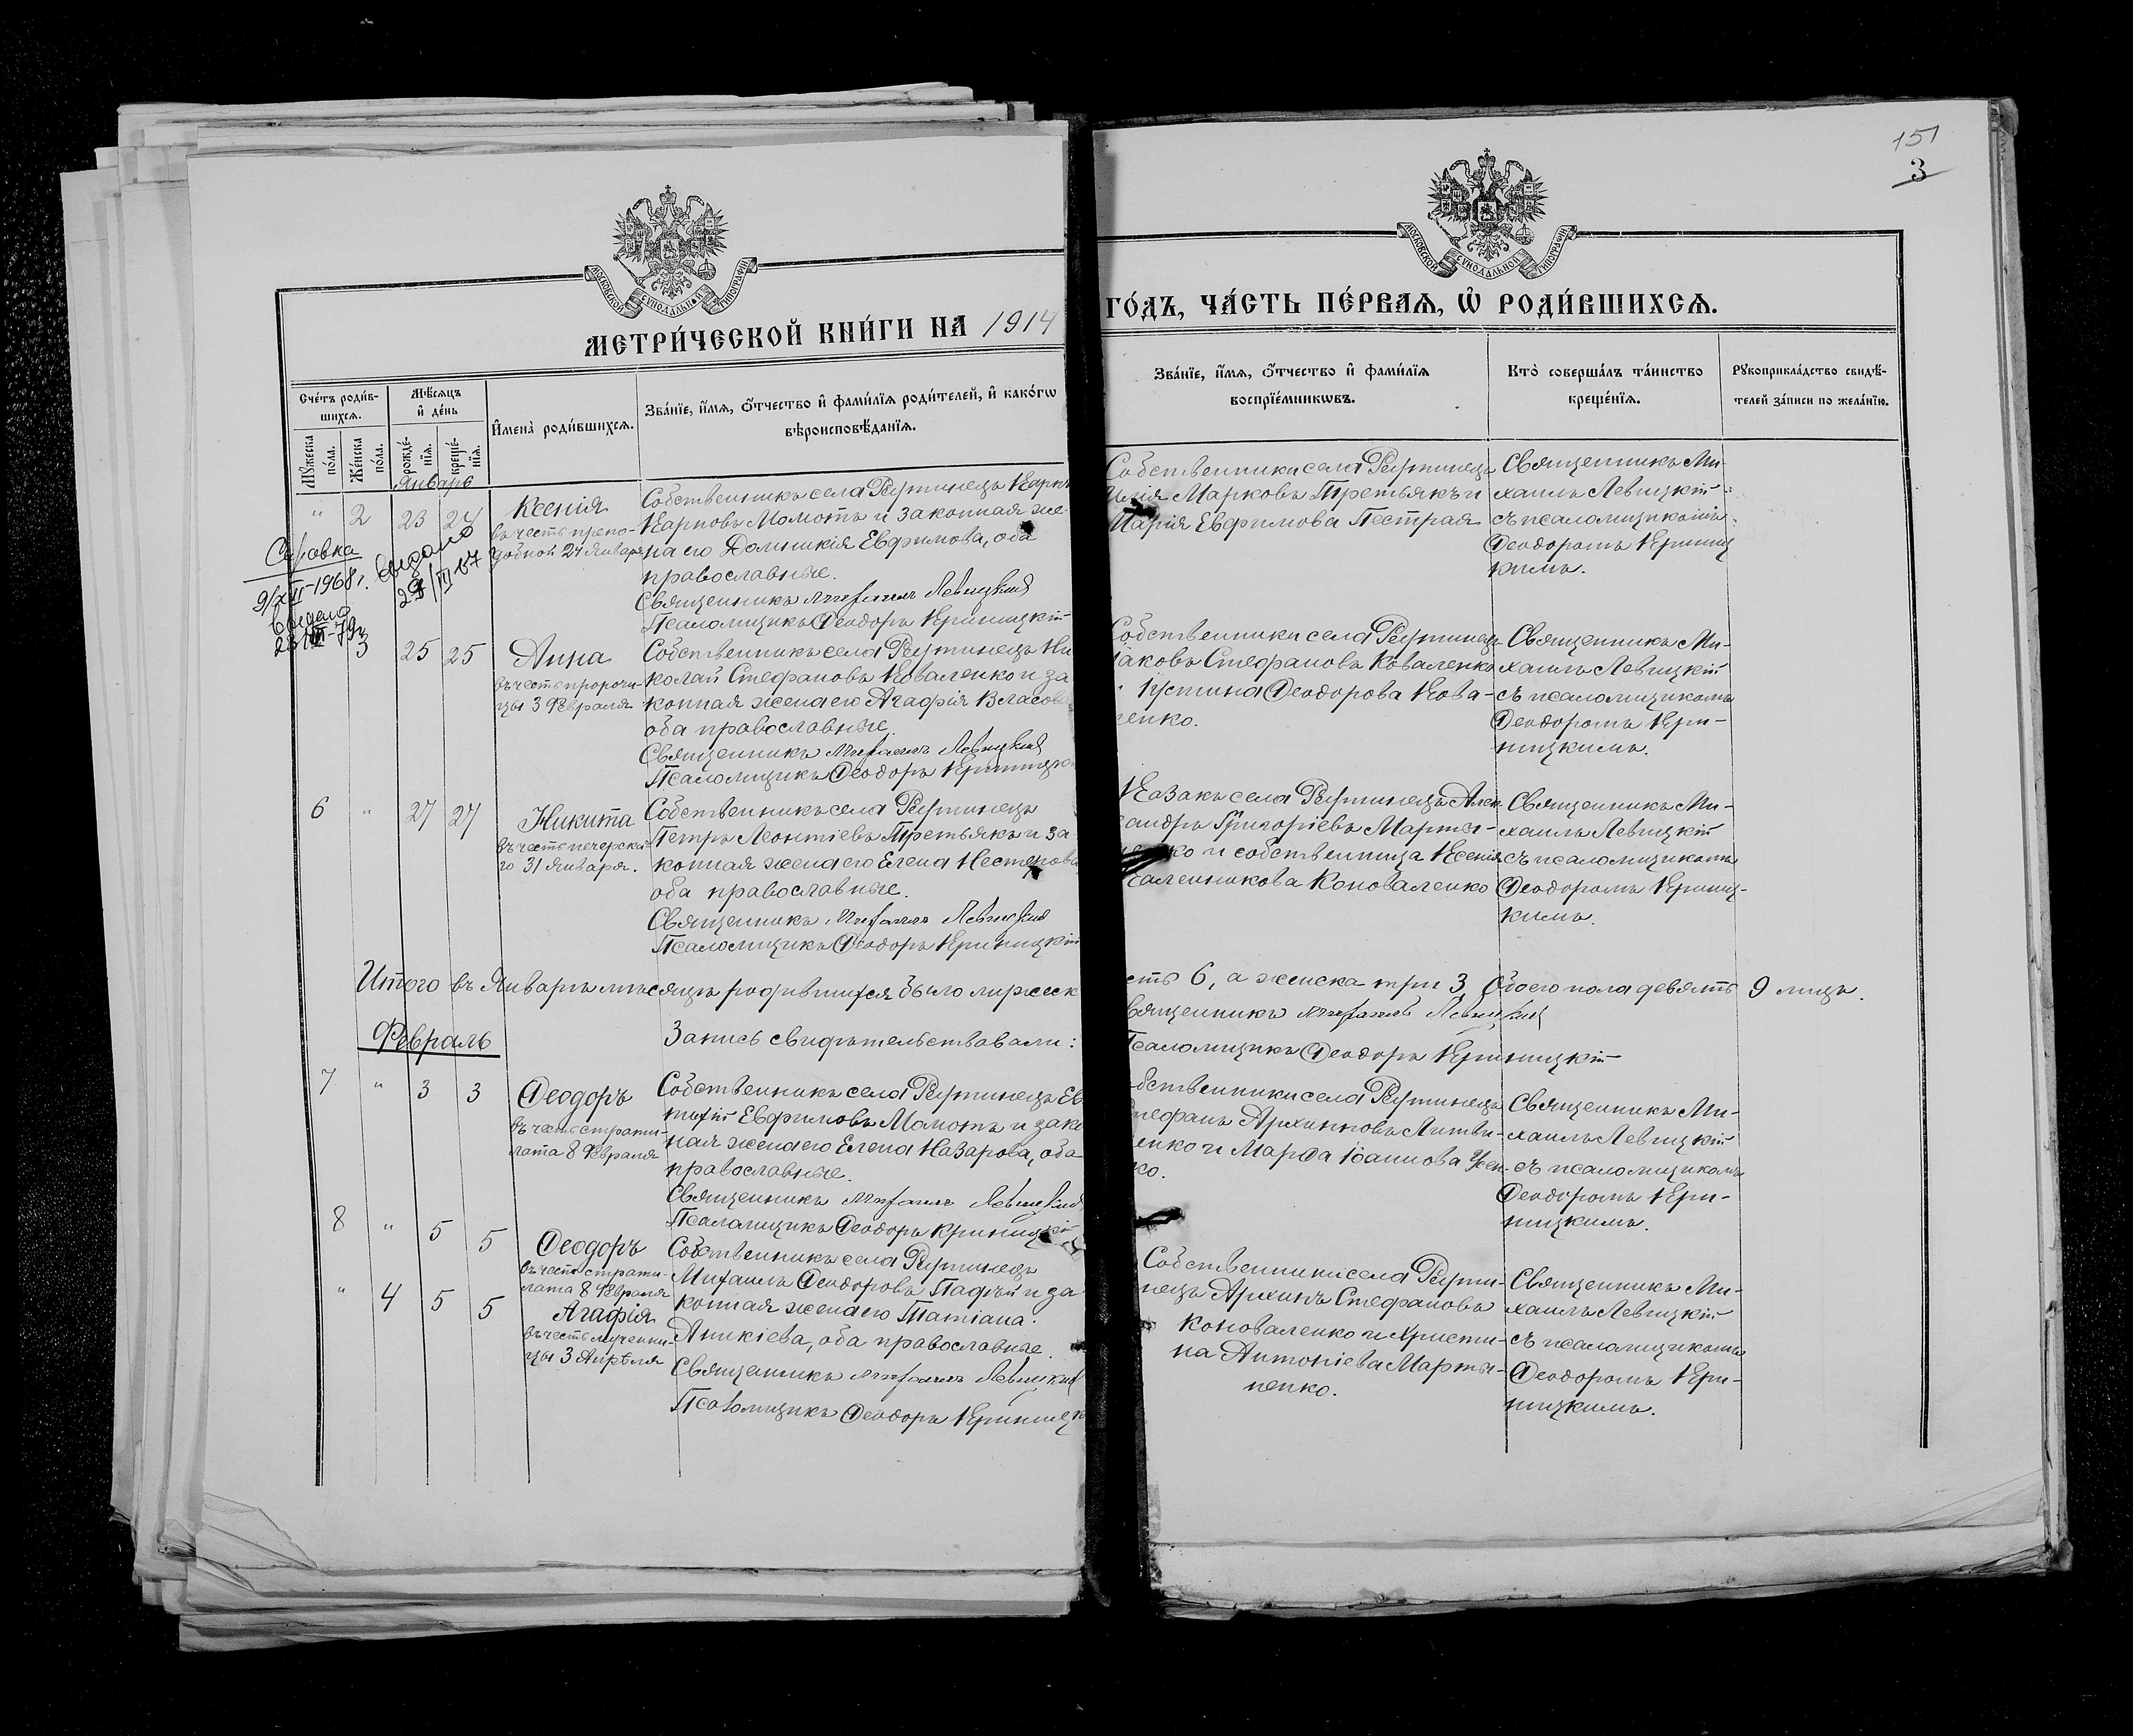 151
3
МОСКОВСКОЙ СѴНОДАЛЬНОЙ ТИПОГРАФІИ
МОСКОВСКОЙ СѴНОДАЛЬНОЙ ТИПОГРАФІИ
МЕТРИ́ЧЕСКОЙ КНИ́ГИ НА 1914
ГО́ДЪ, ЧА́СТЬ ПЕ́РВАѦ, Ѡ҆ РОДИ́ВШИХСѦ.
Сче́тъ роди́в-
шихсѧ.
Мꙋ́жеска по́ла.
Же́нска по́ла.
Мѣ́сѧцъ
и҆ де́нь
рожде́-
нїѧ.
креще́-
нїѧ.
И҆мена̀ роди́вшихсѧ.
Зва́нїе, и҆́мѧ, ѻ҆́тчество и҆ фами́лїѧ роди́телей, и҆ како́гѡ
вѣроисповѣ́данїѧ.
Зва́нїе, и҆́мѧ, ѻ҆́тчество и҆ фами́лїѧ
воспрїе́мникѡвъ.
Кто̀ соверша́лъ та́инство
креще́нїѧ.
Рꙋкоприкла́дство свидѣ́-
телей за́писи по жела́нїю.
Январь
" 2 23 24
Ксенія
въ честь препо-
добной 24 Января
Собственникъ села Рептинецъ Карпъ
Карповъ Момотъ и законная же-
на его Домникія Евфимова, оба
православные.
Священникъ Михаилъ Левицкий
Псаломщикъ Ѳеодоръ Криницкій
Собственники села Рептинецъ
Марковъ Третьякъ и
Марія Евфимова Пестрая
Священникъ Ми-
хаилъ Левицкій
съ псаломщикомъ
Ѳеодоромъ Криниц
кимъ.
Справка
9/XII-1968 г.
выдано
выдано
3 25 25
Анна
въ честь пророчи-
цы 3 Февраля
Собственникъ села Рептинецъ Ни
колай Стефановъ Коваленко и за
конная жена его Агафія Власова
оба православные.
Священникъ Михаилъ Левицкий
Псаломщикъ Ѳеодоръ Криницкій
Собственники села Рептинецъ
Іаковъ Стефановъ Коваленко
Іустина Ѳеодорова Кова-
ленко.
Священникъ Ми-
хаилъ Левицкій
съ псаломщикомъ
Ѳеодоромъ Кри-
ницкимъ.
6 " 27 27
Никита
въ честь печерска-
го 31 Января.
Собственникъ села Рептинецъ
Петръ Леонтіевъ Третьякъ и за-
конная жена его Елена Нестерова
оба православные.
Священникъ Михаилъ Левицкий
Псаломщикъ Ѳеодоръ Криницкій
Казакъ села Рептинецъ Алек-
сандръ Григоріевъ Марты-
ненко и собственница Ксенія
Каленикова Коноваленко
Священникъ Ми-
хаилъ Левицкій
съ псаломщикомъ
Ѳеодоромъ Криниц-
кимъ.
Итого въ Январѣ мѣсяцѣ родившихся было мужеск
есть 6, а женска три 3, Обоего пола девять 9 лицъ.
Священникъ Михаилъ Левицкий
Февраль
Запись свидѣтельствовали:
Псаломщикъ Ѳеодоръ Криницкій
7 " 3 3
Ѳеодоръ
въ честь страти-
лата 8 Февраля
Собственникъ села Рептинецъ Ев
тихій Евфимовъ Момотъ и зако
ная жена его Елена Назарова, оба
православные.
Священникъ Михаилъ Левицкий
Псаломщикъ Ѳеодоръ Криницкій
Собственники села Рептинецъ
Стефанъ Архиповъ Литви-
ненко и Марѳа Іоаннова
ко.
Священникъ Ми-
хаилъ Левицкій
съ псаломщикомъ
Ѳеодоромъ Кри-
ницкимъ.
8 " 5 5
Ѳеодоръ
въ честь страти-
лата 8 Февраля
" 4 5 5
Агафія
въ честь мучени-
цы 3 Апрѣля
Собственникъ села Рептинецъ
Михаилъ Ѳеодоровъ Падѣй и за
конная жена его Татіана
Аникіева, оба православные.
Священникъ Михаилъ Левицкий
Псаломщикъ Ѳеодоръ Криницкі
Собственники села Репти-
нецъ Архипъ Стефановъ
Коноваленко и Христи-
на Антоніева Марты-
ненко.
Священникъ Ми-
хаилъ Левицкій
съ псаломщикомъ
Ѳеодоромъ Кри-
ницкимъ.